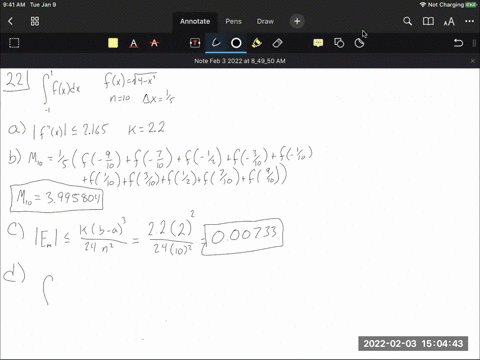 9:41 AM Tue Jan 9
Not Charging
Annotate Pens Draw
Note Feb 3 2022 at 8_49_50 AM
22) ∫₋₁¹ f(x)dx f(x)=√(4-x³)
n=10 Δx=1/5
a) |f"(x)| ≤ 2.165 K=2.2
b) M₁₀ = 1/5 (f(-9/10)+f(-7/10)+f(-1/2)+f(-3/10)+f(-1/10)
+f(1/10)+f(3/10)+f(1/2)+f(7/10)+f(9/10))
M₁₀ = 3.995804
c) |Eₘ| ≤ K(b-a)³/24n² = 2.2(2)²/24(10)² = 0.00733
d) ∫
2022-02-03 15:04:43